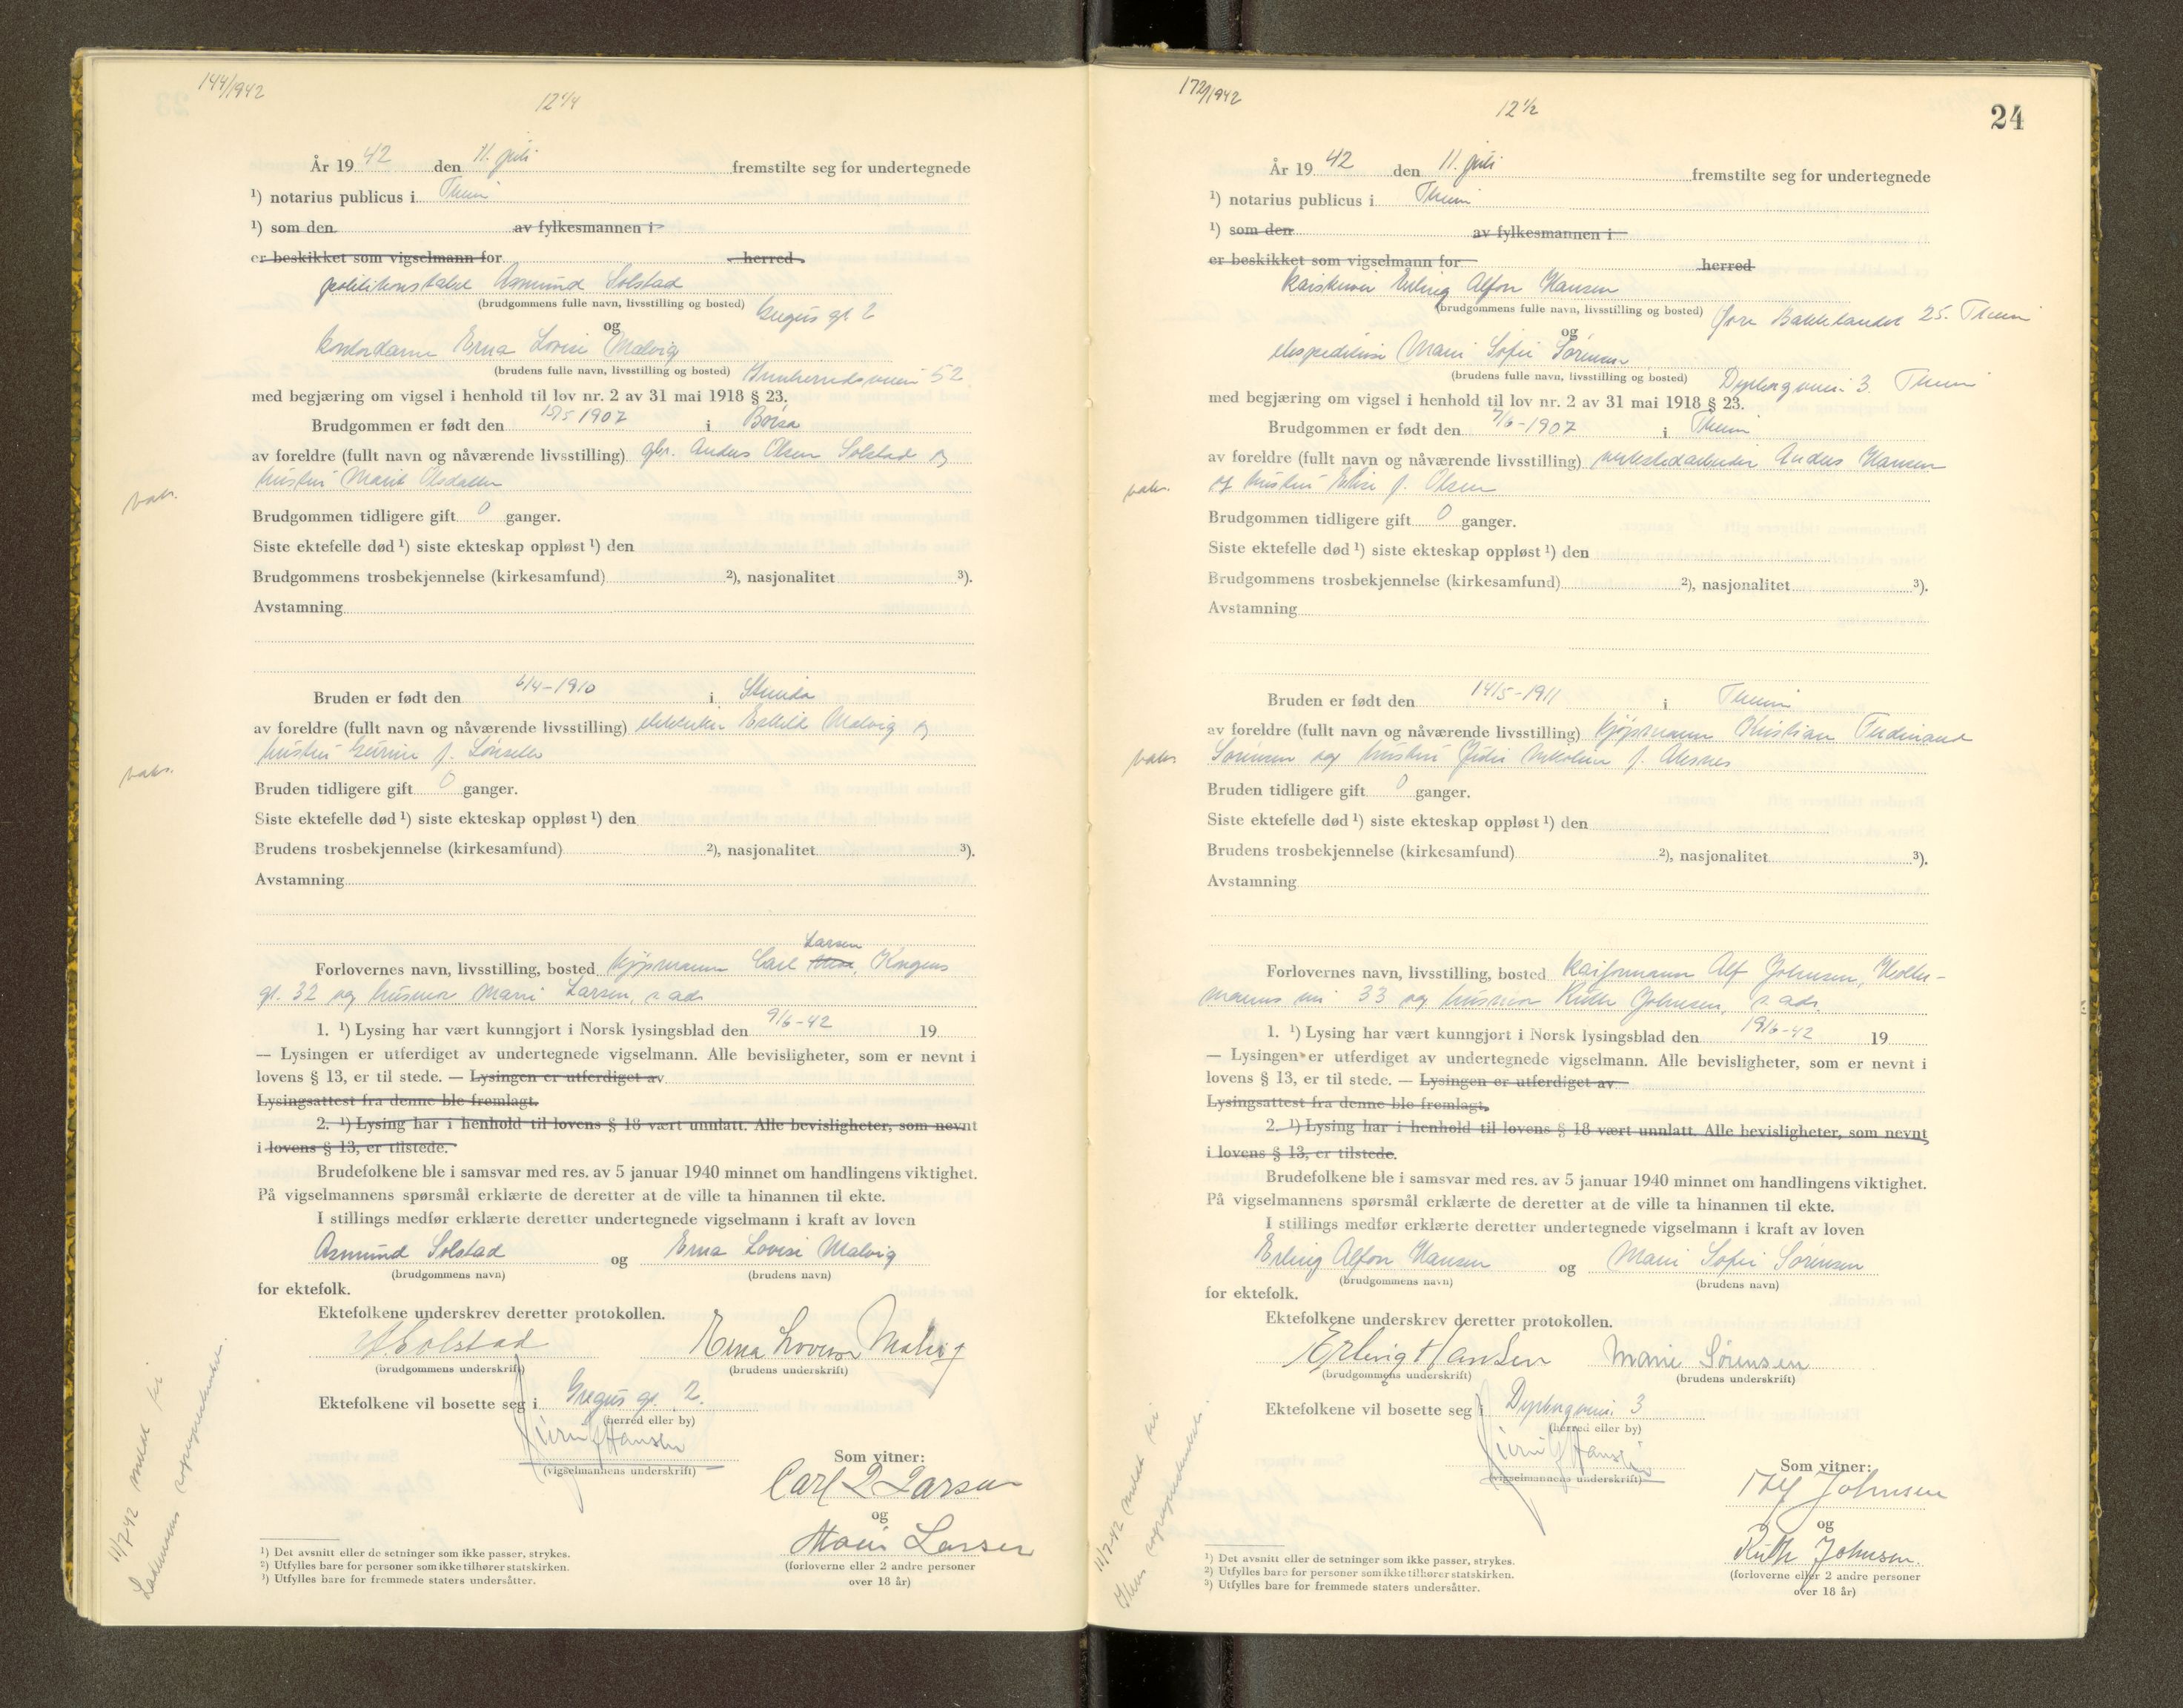 144/1942
12 1/4
År 19 42 den 11. juli fremstilte seg for undertegnede
¹) notarius publicus i Thrm
¹) som den av fylkesmannen i
er beskikket som vigselmann for herred.
politikonstabel Asmund Solstad
(brudgommens fulle navn, livsstilling og bosted) Gregus gt 2
og
kontordame Erna Lovise Malvig
(brudens fulle navn, livsstilling og bosted) Innherredsveien 52
med begjæring om vigsel i henhold til lov nr. 2 av 31 mai 1918 § 23.
Brudgommen er født den 15/5 1907 i Børsa
av foreldre (fullt navn og nåværende livsstilling) gbr. Anders Olsen Solstad og
hustru Marit Olsdatter
vaks.
Brudgommen tidligere gift 0 ganger.
Siste ektefelle død ¹) siste ekteskap oppløst ¹) den
Brudgommens trosbekjennelse (kirkesamfund) ²), nasjonalitet ³).
Avstamning
Bruden er født den 6/4-1910 i Strinda
av foreldre (fullt navn og nåværende livsstilling) elektriker Eskild Malvig og
hustru Gurine f.
vaks.
Bruden tidligere gift 0 ganger.
Siste ektefelle død ¹) siste ekteskap oppløst ¹) den
Brudens trosbekjennelse (kirkesamfund) ²), nasjonalitet ³).
Avstamning
Larsen
Forlovernes navn, livsstilling, bosted kjøpmann Carl Kongens
gt. 32 og husmor Marie Larsen, s. ads.
1. ¹) Lysing har vært kunngjort i Norsk lysingsblad den 9/6-42 19
— Lysingen er utferdiget av undertegnede vigselmann. Alle bevisligheter, som er nevnt i
lovens § 13, er til stede. — Lysingen er utferdiget av
Lysingsattest fra denne ble fremlagt.
2. ¹) Lysing har i henhold til lovens § 18 vært unnlatt. Alle bevisligheter, som nevnt
i lovens § 13, er tilstede.
Brudefolkene ble i samsvar med res. av 5 januar 1940 minnet om handlingens viktighet.
På vigselmannens spørsmål erklærte de deretter at de ville ta hinannen til ekte.
I stillings medfør erklærte deretter undertegnede vigselmann i kraft av loven
Asmund Solstad og Erna Lovise Malvig
(brudgommens navn) (brudens navn)
for ektefolk.
Ektefolkene underskrev deretter protokollen.
A Solstad Erna Lovise Malvig
(brudgommens underskrift) (brudens underskrift)
Ektefolkene vil bosette seg i Gregus gt. 2.
(herred eller by)
Hansen
(vigselmannens underskrift)
Som vitner:
Carl L Larsen
og
Marie Larsen
(forloverne eller 2 andre personer
over 18 år)
11/7-42 meldt til
Lademoens sogneprestembete.
¹) Det avsnitt eller de setninger som ikke passer, strykes.
²) Utfylles bare for personer som ikke tilhører statskirken.
³) Utfylles bare for fremmede staters undersåtter.
172/1942
12 1/2
24
År 19 42 den 11. juli fremstilte seg for undertegnede
¹) notarius publicus i Thrm
¹) som den av fylkesmannen i
er beskikket som vigselmann for herred
kaiskriver Erling Alfon Hansen
(brudgommens fulle navn, livsstilling og bosted) Øvre Bakklandet 25. Thrm
og
ekspeditrise Marie Sofie Sørensen
(brudens fulle navn, livsstilling og bosted) Dyrborgveien 3. Thrm
med begjæring om vigsel i henhold til lov nr. 2 av 31 mai 1918 § 23.
Brudgommen er født den 7/6-1907 i Thrm
av foreldre (fullt navn og nåværende livsstilling) verkstedarbeider Anders Hansen
og hustru Elise f. Olsen
vaks.
Brudgommen tidligere gift 0 ganger.
Siste ektefelle død ¹) siste ekteskap oppløst ¹) den
Brudgommens trosbekjennelse (kirkesamfund) ²), nasjonalitet ³).
Avstamning
Bruden er født den 14/5-1911 i Thrm
av foreldre (fullt navn og nåværende livsstilling) kjøpmann Kristian Ferdinand
Sørensen og hustru Nikoline f. Alesnes
vaks.
Bruden tidligere gift 0 ganger.
Siste ektefelle død ¹) siste ekteskap oppløst ¹) den
Brudens trosbekjennelse (kirkesamfund) ²), nasjonalitet ³).
Avstamning
Forlovernes navn, livsstilling, bosted kaiformann Alf Johnsen,
33 og husmor Ruth Johnsen, s. ads.
1. ¹) Lysing har vært kunngjort i Norsk lysingsblad den 19/6-42 19
— Lysingen er utferdiget av undertegnede vigselmann. Alle bevisligheter, som er nevnt i
lovens § 13, er til stede. — Lysingen er utferdiget av
Lysingsattest fra denne ble fremlagt.
2. ¹) Lysing har i henhold til lovens § 18 vært unnlatt. Alle bevisligheter, som nevnt
i lovens § 13, er tilstede.
Brudefolkene ble i samsvar med res. av 5 januar 1940 minnet om handlingens viktighet.
På vigselmannens spørsmål erklærte de deretter at de ville ta hinannen til ekte.
I stillings medfør erklærte deretter undertegnede vigselmann i kraft av loven
Erling Alfon Hansen og Marie Sofie Sørensen
(brudgommens navn) (brudens navn)
for ektefolk.
Ektefolkene underskrev deretter protokollen.
Erling Hansen Marie Sørensen
(brudgommens underskrift) (brudens underskrift)
Ektefolkene vil bosette seg i Dyrborgveien 3
(herred eller by)
Hansen
(vigselmannens underskrift)
Som vitner:
Alf Johnsen
og
Ruth Johnsen.
(forloverne eller 2 andre personer
over 18 år)
11/7-42 meldt til
Ilens sogneprestembete.
¹) Det avsnitt eller de setninger som ikke passer, strykes.
²) Utfylles bare for personer som ikke tilhører statskirken.
³) Utfylles bare for fremmede staters undersåtter.